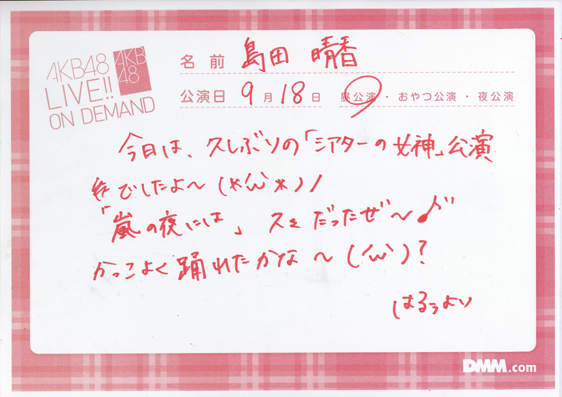 AKB48
LIVE!!
ON DEMAND
AKB
48
名前 島田 晴香
公演日 9月18日 昼公演・おやつ公演・夜公演
今日は、久しぶりの「シアターの女神」公演
でしたよ〜
「嵐の夜には」 だったぜ〜♪
かっこよく踊れたかな〜(/ω\)?
はるぅより
DMM.com